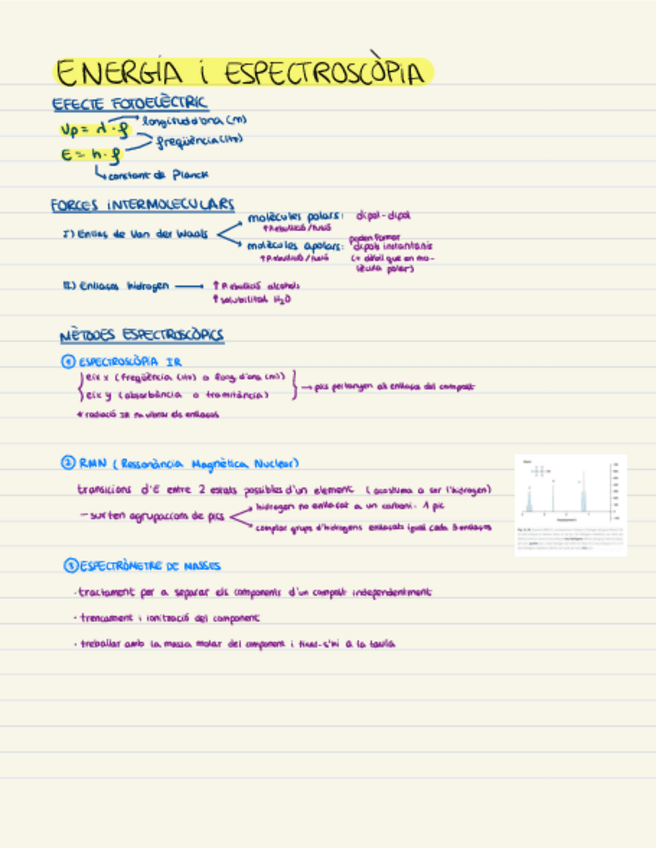 ENERGIA i ESPECTROSCÒPIA
EFECTE FOTOELÈCTRIC
Vp = λ · f
longitud d'ona (m)
freqüència (Hz)
E = h · f
constant de Planck
FORCES INTERMOLECULARS
I) Enllaç de Van der Waals
molècules polars: dipol-dipol
↑P. ebullició / fusió
molècules apolars: poden formar dipols instantanis
↑P. ebullició / fusió
(+ dèbil que en mo-
lècula polar)
II) Enllaços hidrogen → ↑ P. ebullició alcohols
↑ solubilitat H₂O
MÈTODES ESPECTROSCÒPICS
① ESPECTROSCÒPIA IR
eix x (freqüència (Hz) o long. d'ona (m))
eix y (absorbància o tramitància)
→ pics pertanyen als enllaços del compost
* radiació IR fa vibrar els enllaços
② RMN (Ressonància Magnètica Nuclear)
transicions d'E entre 2 estats possibles d'un element (acostuma a ser l'hidrogen)
- surten agrupacions de pics
hidrogen no enllaçat a un carboni. 1 pic
comptar grups d'hidrogens enllaçats igual cada
③ ESPECTRÒMETRE DE MASSES
· tractament per a separar els components d'un compost independentment
· trencament i ionització del component
· treballar amb la massa molar del component i fixar-s'hi a la taula